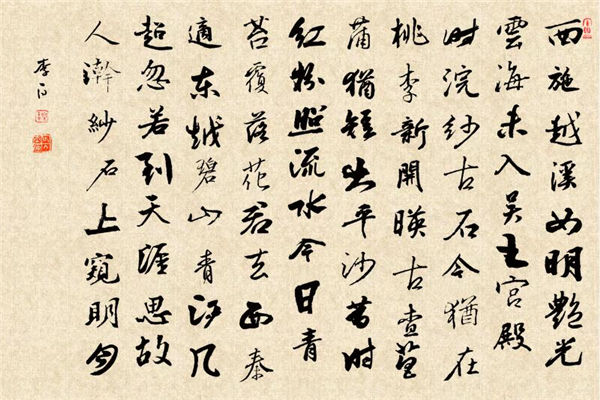 西施越溪女明艷光
雲海未入吳王宮殿
时浣纱古石今猶在
桃李新開暎古查菖
蒲猶短出平沙昔时
红粉照流水今日青
苔覆落花君去西秦
適东越碧山青江几
超忽若到天涯思故
人澣紗石上窺明月
李白